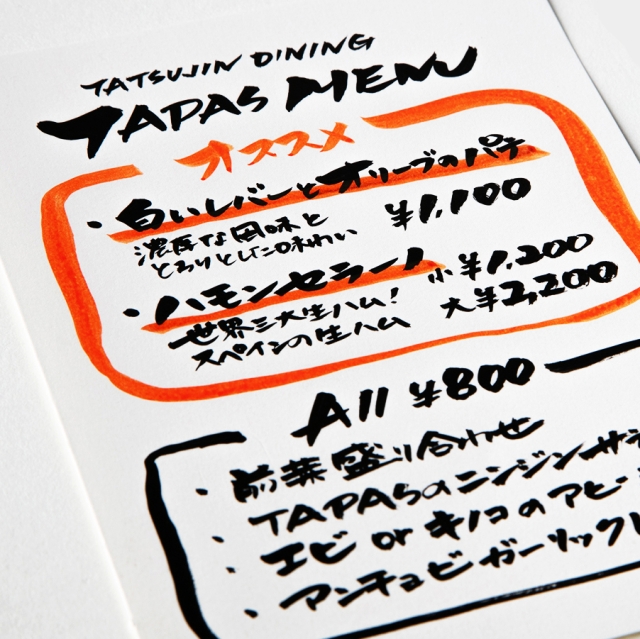 TATSUJIN DINING
TAPAS MENU
オススメ
・白いレバーとオリーブのパテ
濃厚な風味と
とろりとした味わい
¥1,100
・ハモンセラーノ
世界三大生ハム!
スペインの生ハム
小¥1,200
大¥2,200
All ¥800
・前菜盛り合わせ
・TAPASのニンジンサラ
・エビ or キノコのアヒー
・アンチョビガーリック